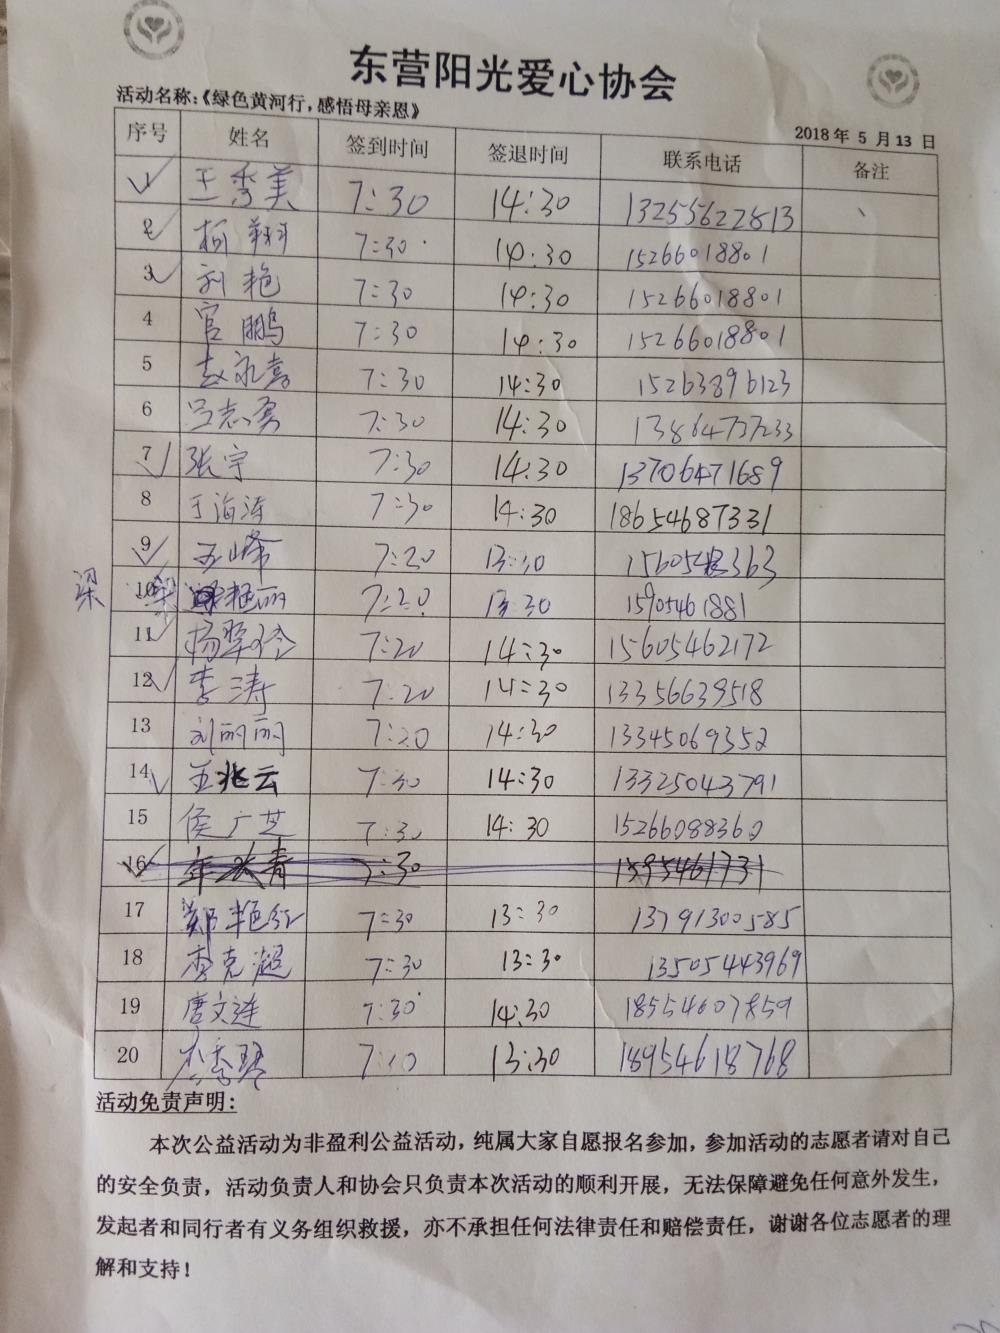 东营阳光爱心协会
活动名称：《绿色黄河行，感悟母亲恩》
2018年 5 月 13 日
序号 姓名 签到时间 签退时间 联系电话 备注
1 王秀美 7:30 14:30 13255622813
2 柯翔 7:30 14:30 15266018801
3 刘艳 7:30 14:30 15266018801
4 官鹏 7:30 14:30 15266018801
5 赵永嘉 7:30 14:30 15263896123
6 吕志勇 7:30 14:30 13864737233
7 张宇 7:30 14:30 13706471689
8 于海涛 7:30 14:30 18654687331
9 王峰 7:20 13:30
梁 10 梁艳丽 7:20 13:30 15905461881
11 杨翠玲 7:20 14:30 15605462172
12 李涛 7:20 14:30 13356639518
13 刘丽丽 7:20 14:30 13345069352
14 王兆云 7:30 14:30 13325043791
15 侯广芝 7:30 14:30 15266088360
16 7:30
17 郑艳红 7:30 13:30 13791300585
18 李克超 7:30 13:30 13505443969
19 唐文连 7:30 14:30 18554607859
20 7:10 13:30 18954618768
活动免责声明：
本次公益活动为非盈利公益活动，纯属大家自愿报名参加，参加活动的志愿者请对自己
的安全负责，活动负责人和协会只负责本次活动的顺利开展，无法保障避免任何意外发生，
发起者和同行者有义务组织救援，亦不承担任何法律责任和赔偿责任，谢谢各位志愿者的理
解和支持！